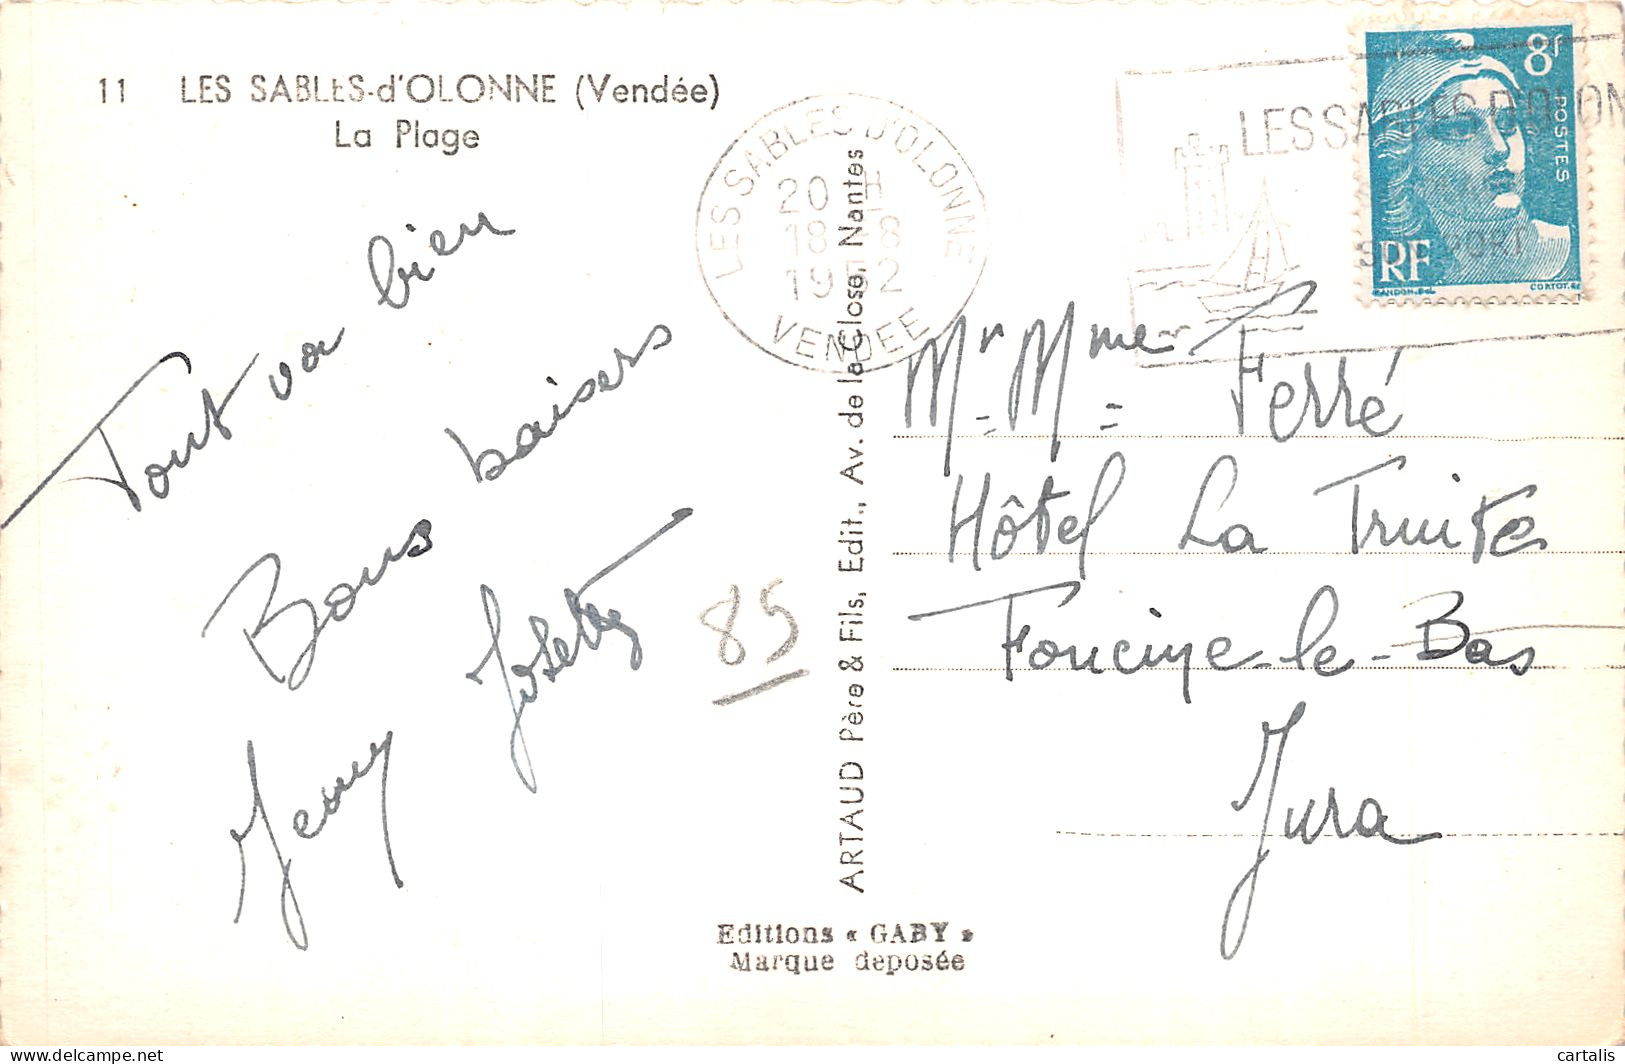 11 LES SABLES-d'OLONNE (Vendée)
La Plage
Tout va bien
Bons baisers
Josette
Jeny
85
ARTAUD Père & Fils, Edit., Av. de la Close, Nantes
Editions « GABY »
Marque deposée
LES SABLES D'OLONNE
20 H
18 -8
1952
VENDEE
LES SABLES D'OLON
SON PORT
8F
POSTES
RF
GANDON.Del.
CORTOT.Sc
Mr Mme Ferré
Hôtel La Truite
Foncine-le-Bas
Jura
delcampe.net
cartalis